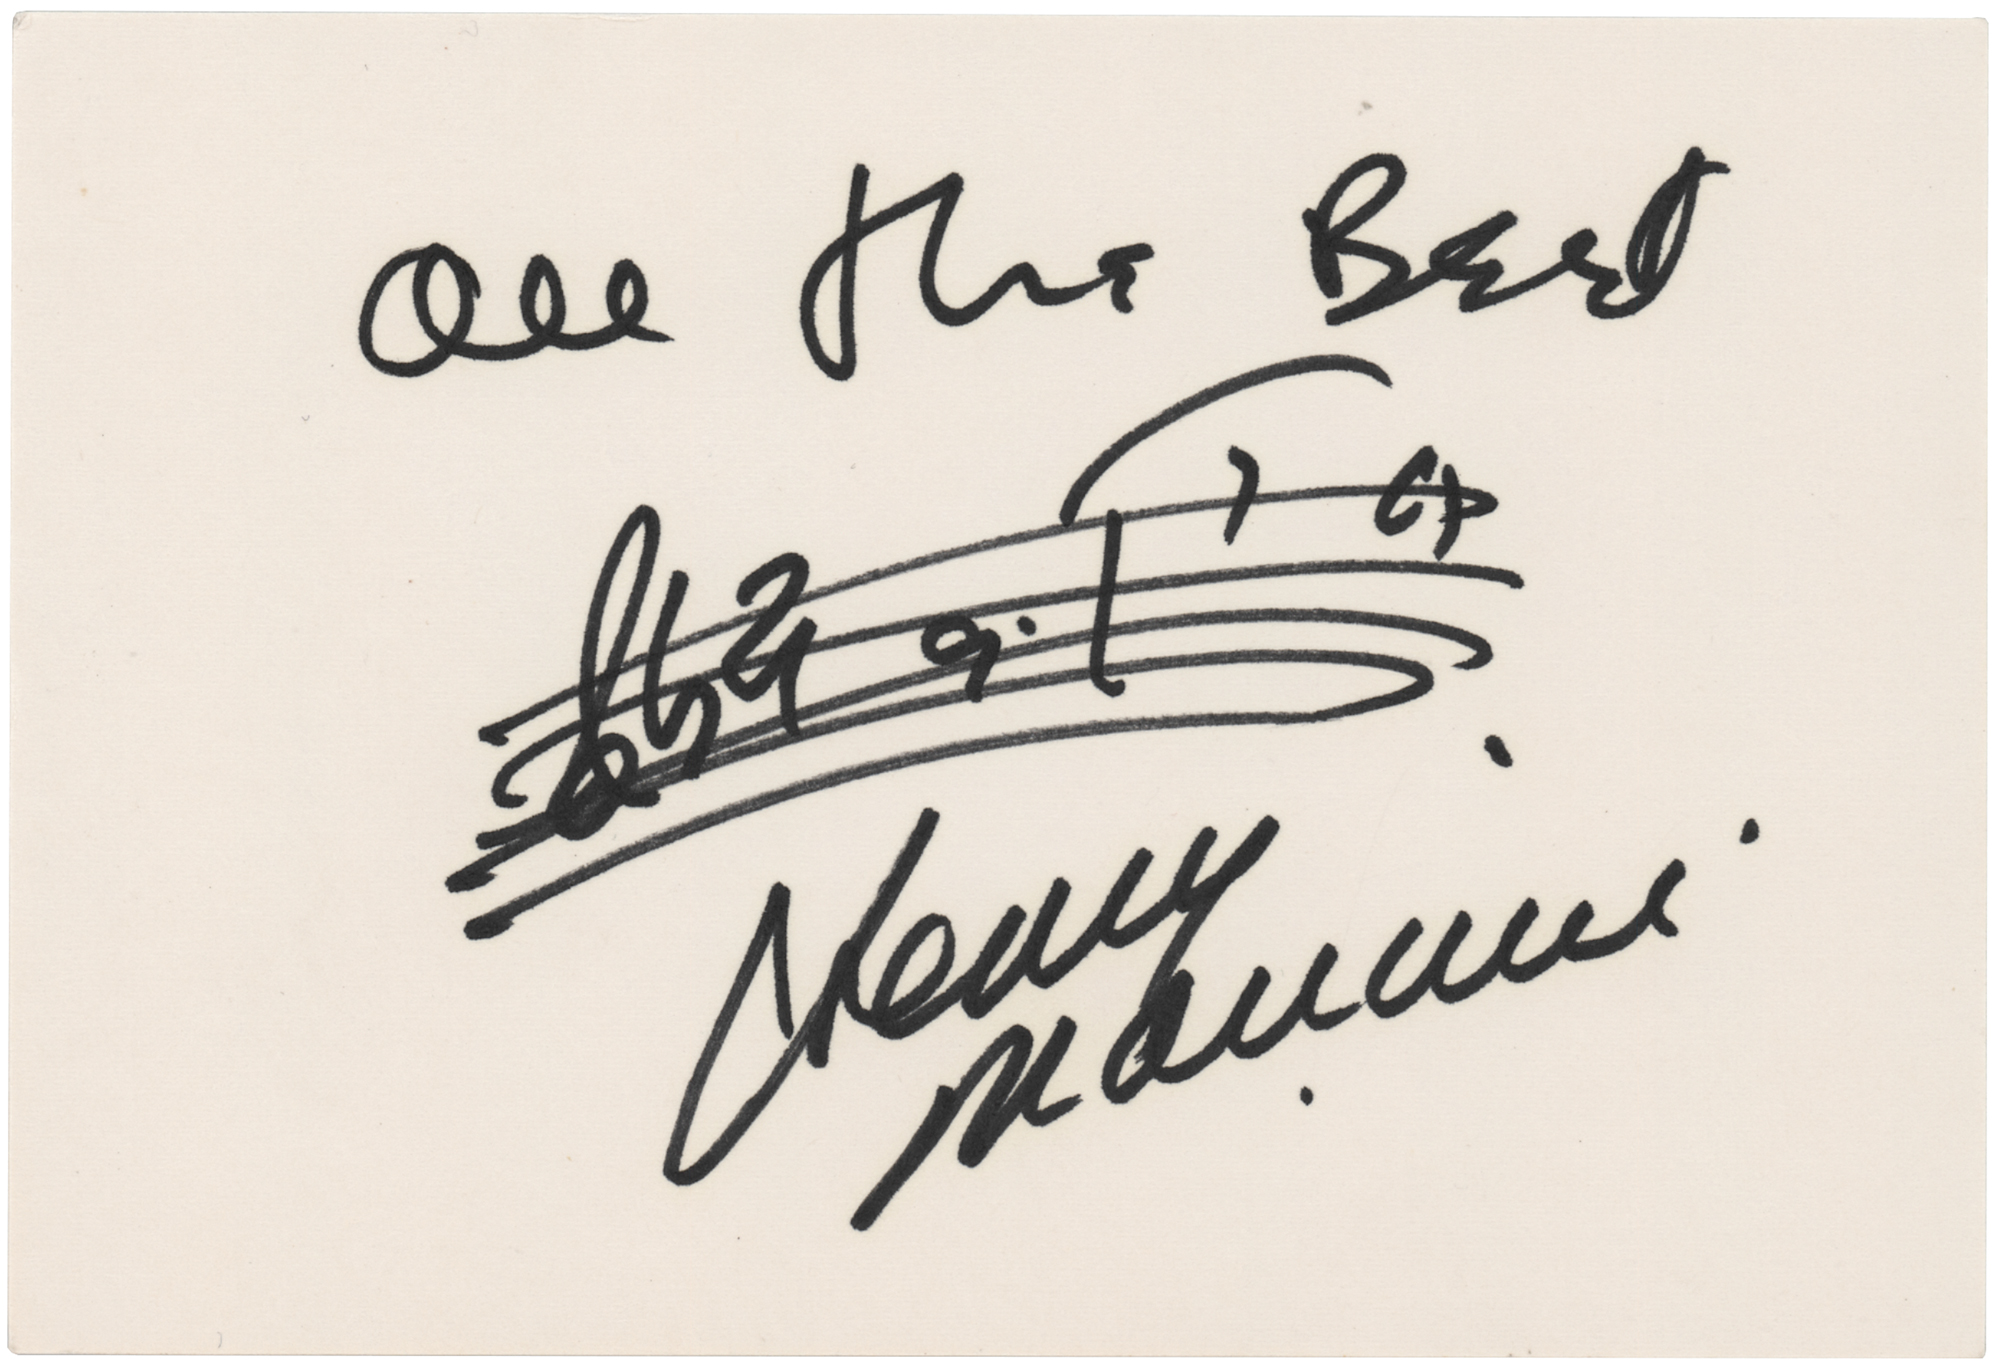 All the Best
Henry
Mancini